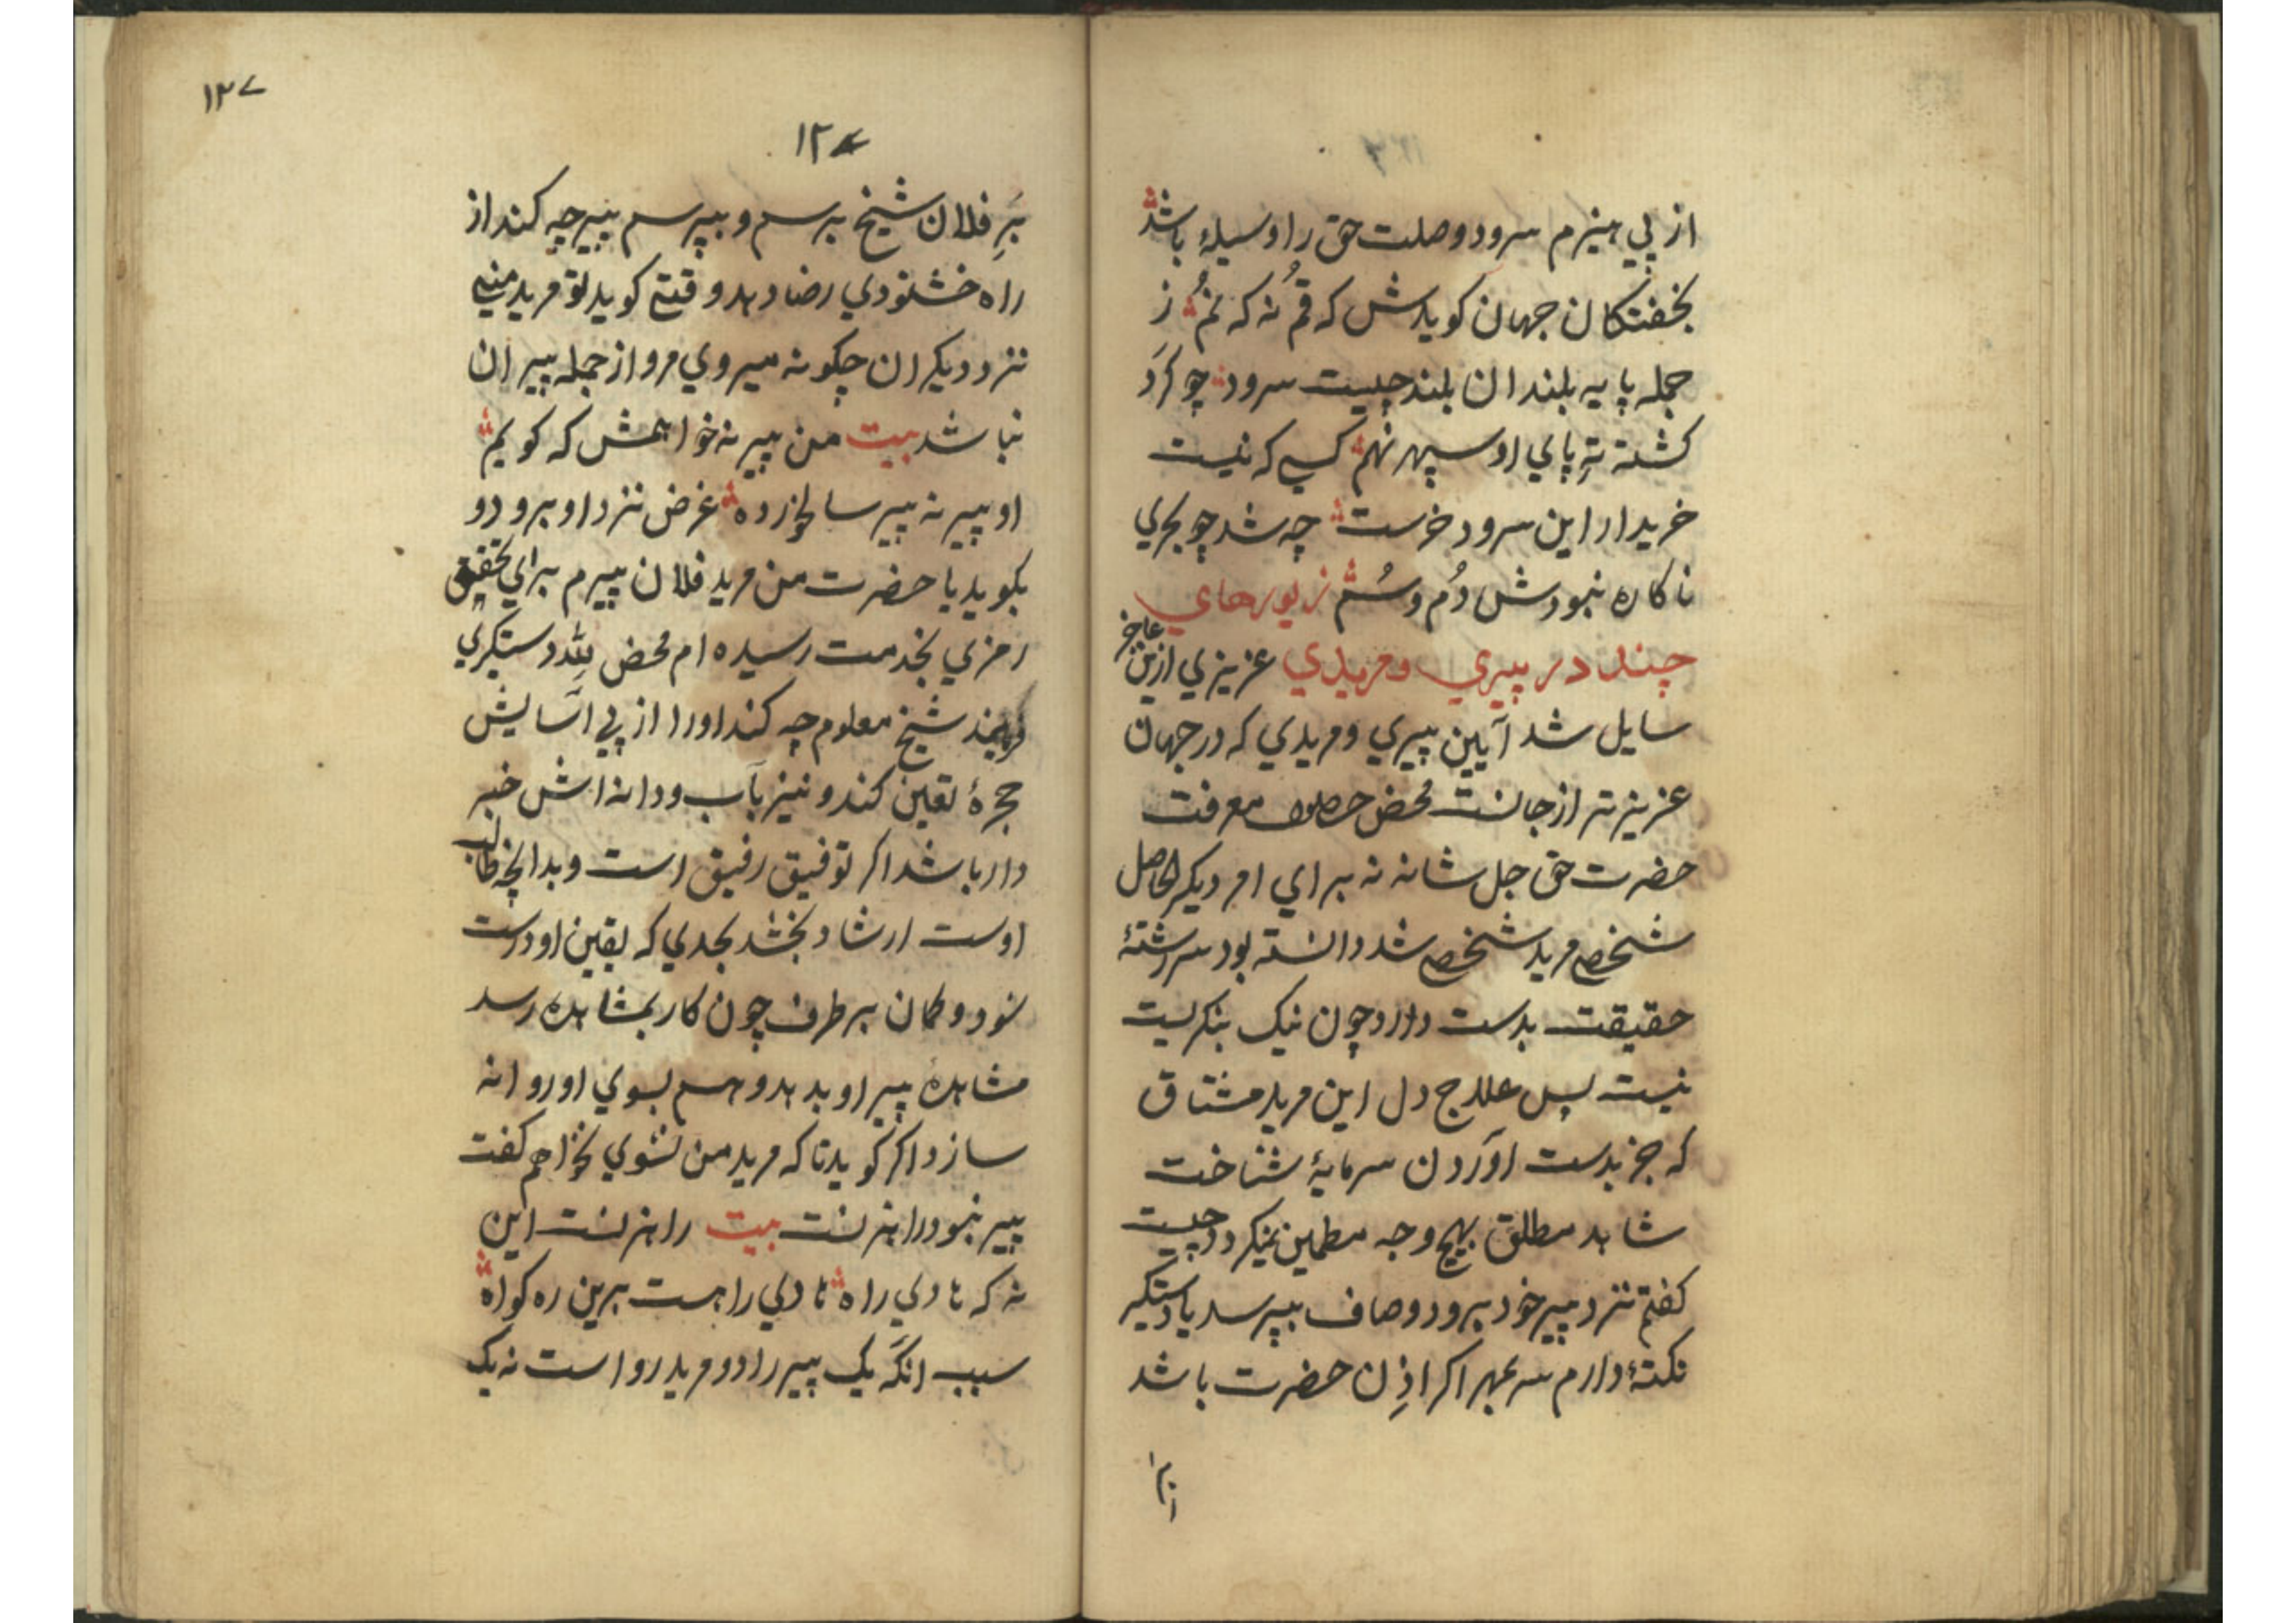 از پي هنيزم سرود وصلت حق را وسيلهٔ باشد
بخفتكان جهان كويدش كه قُم نه كه نَم ز
جمله پايه بلندان بلند چيست سرود چو كرَد
كشته تهِ پاي او سپهر نهم كسي كه نيست
خريدار اين سرود خرست چه شد چو بجري
ناكاره نبودش دُم و سُم زيورهاي
چند در پيري و مريدي عزيزي ازين عاجز
سايل شد آيين پيري و مريدي كه در جهان
عزيزتر از جانست محض حصول معرفت
حضرت حق جل شانه نه براي امر ديكر الحاصل
شخص مريد شخص شد دانسته بود سررشتهٔ
حقيقت بدست دارد چون نيك بنكريست
نيست پس علاج دل اين مريد مشتاق
كه جز بدست آوردن سرمايهٔ شناخت
شاهد مطلق بهيچ وجه مطمين نميكردد چيست
كفتم نزد پير خود برود و صاف بپرسد يا دستكير
نكتهٔ دارم سر بمهر اكر اذِن حضرت باشد
١٢٧
١٢٧
بَرِ فلان شيخ برسم و بپرسم پير چه كند از
راه خشنودي رضا دهد و قتي كويد تو مريد مني
نزد ديكران چكونه ميروي مرو از جمله پيران
نباشد بيت من پير نه خواهمش كه كويم
او پير نه پير سالخورده غرض نزد او برود و
بكويد يا حضرت من مريد فلان پيرم براي تحقيق
رمزي بخدمت رسيده ام محض للّه دستكيري
فرمايند شيخ معلوم چه كند اورا از پي آسايش
حجرهٔ تعين كند و نيز بآب و دانه اش خبر
دار باشد اكر توفيق رفيق است و بدانچه طالب
اوست ارشاد بخشد بحدي كه يقين او درست
شود و كمان برطرف چون كار بمشاهده رسد
مشاهدهٔ پير او بدهد و هم بسوي او روانه
سازد اكر كويد تا كه مريد من نشوي نخواهم كفت
پير نبود راهزنست بيت راهزنست اين
نه كه هادي راه هادي راهست برين ره كواه
سبب انكَه يك پير را دو مريد رواست نه يك